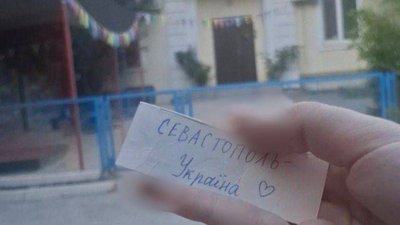 СЕВАСТОПОЛЬ-
Україна ♡